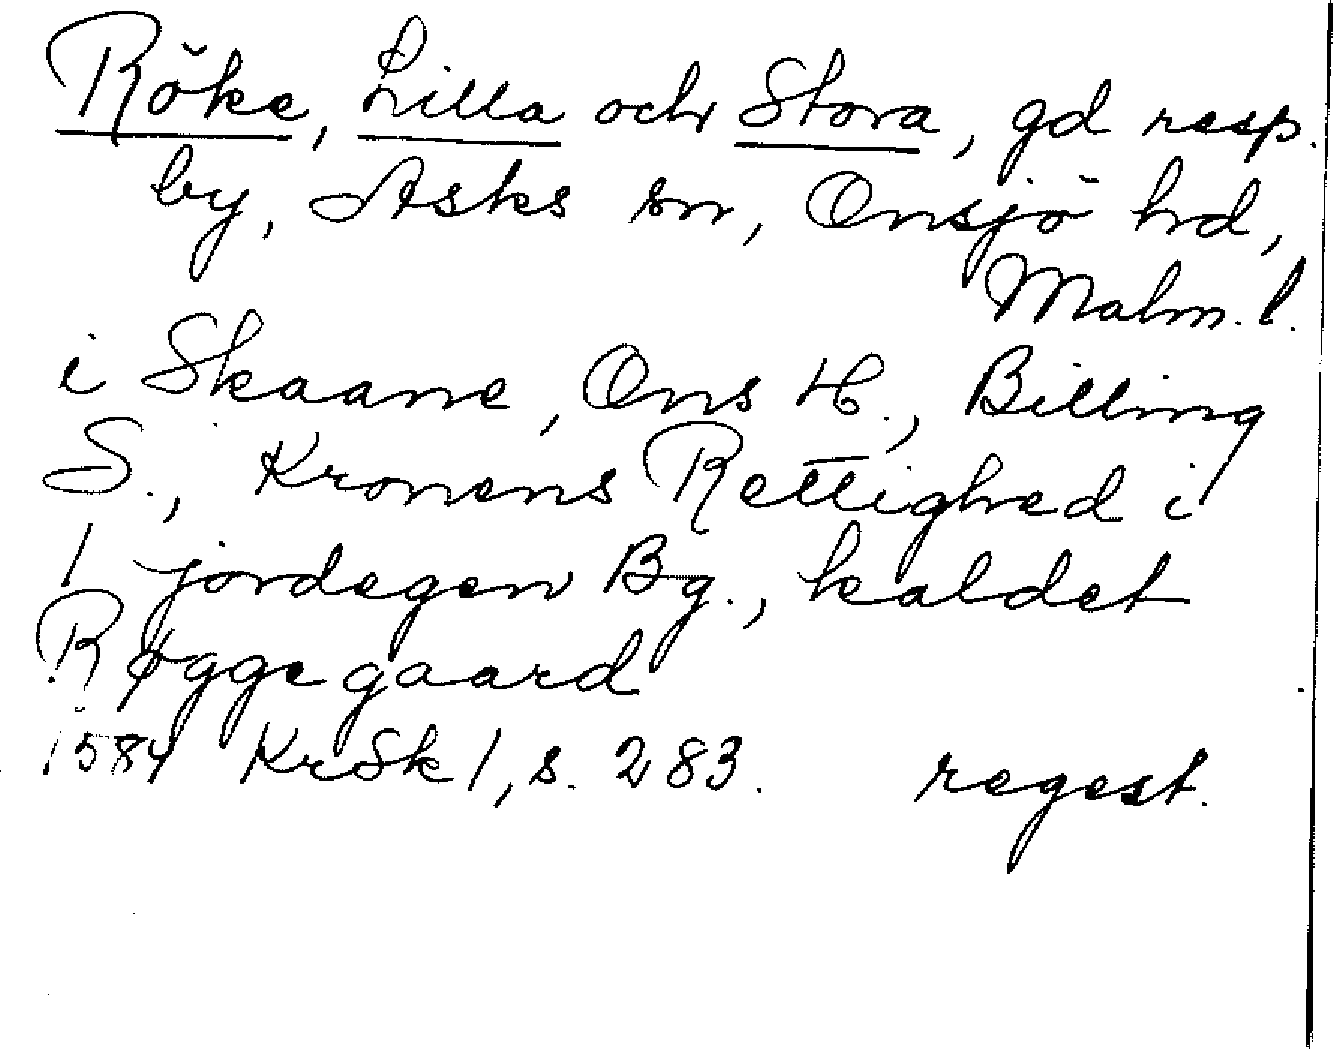 Röke, Lilla och Stora, gd resp.
by, Asks sn, Onsjö hd,
Malm. l.
i Skaane, Ons H., Billing
S., Kronens Rettighed i
1 jordegen Bg., kaldet
Røggegaard
1584 KrSk 1, s. 283. regest.